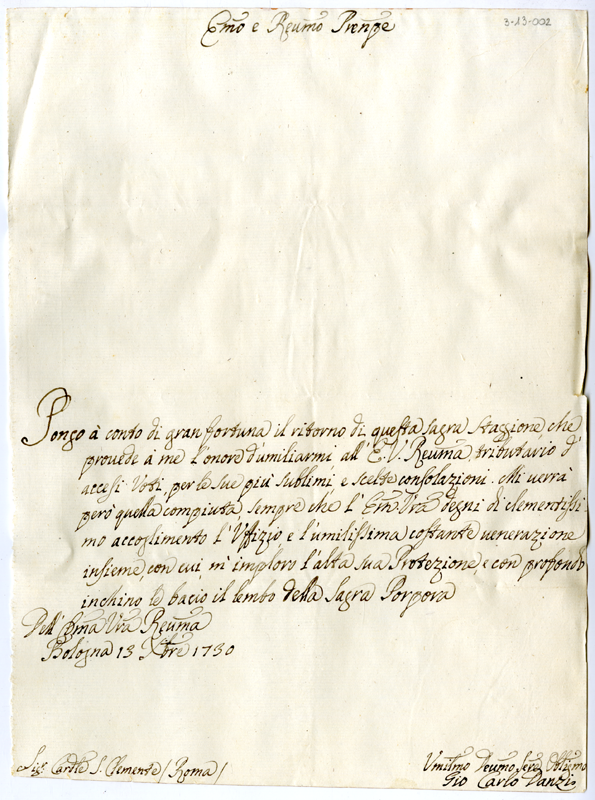 3-13-002
Emo e Reumo Prenpe
Pongo à conto di gran fortuna il ritorno di questa sagra staggione, che
prouede à me l'onore d'umiliarmi all' E. V. Reuma, tributario d'
accesi Voti, per le sue più sublimi e scelte consolazioni. Mi verrà
però quella compiuta sempre che l' Ema Vra degni di clementissi-
mo accoglimento l'Uffizio e l'umilissima costante venerazione
insieme, con cui m'imploro l'alta sua Protezione, e con profondo
inchino le bacio il lembo della Sagra Porpora
Dell' Ema Vra Reuma
Bologna 13 Xbre 1730
Sig. Cardle S. Clemente / Roma /
Umilmo Deumo Sere Oblimo
Gio Carlo Danzi